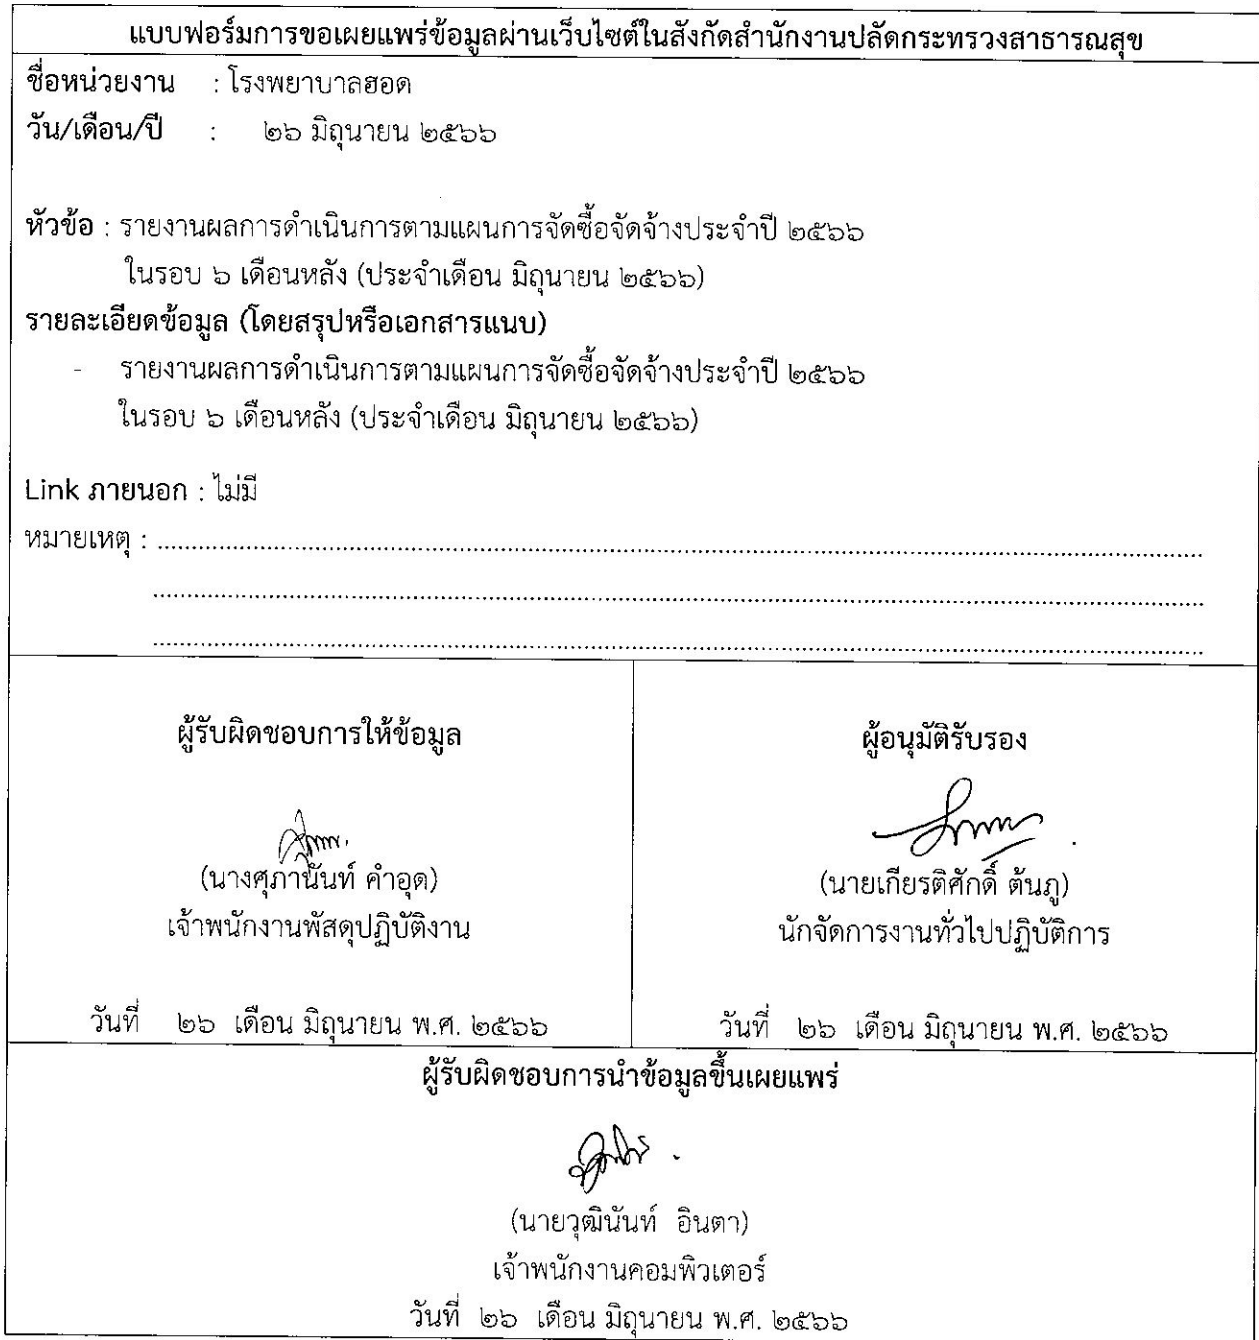 แบบฟอร์มการขอเผยแพร่ข้อมูลผ่านเว็บไซต์ในสังกัดสำนักงานปลัดกระทรวงสาธารณสุข
ชื่อหน่วยงาน : โรงพยาบาลฮอด
วัน/เดือน/ปี : ๒๖ มิถุนายน ๒๕๖๖
หัวข้อ : รายงานผลการดำเนินการตามแผนการจัดซื้อจัดจ้างประจำปี ๒๕๖๖
ในรอบ ๖ เดือนหลัง (ประจำเดือน มิถุนายน ๒๕๖๖)
รายละเอียดข้อมูล (โดยสรุปหรือเอกสารแนบ)
- รายงานผลการดำเนินการตามแผนการจัดซื้อจัดจ้างประจำปี ๒๕๖๖
ในรอบ ๖ เดือนหลัง (ประจำเดือน มิถุนายน ๒๕๖๖)
Link ภายนอก : ไม่มี
หมายเหตุ :
ผู้รับผิดชอบการให้ข้อมูล
(นางศุภานันท์ คำอุด)
เจ้าพนักงานพัสดุปฏิบัติงาน
วันที่ ๒๖ เดือน มิถุนายน พ.ศ. ๒๕๖๖
ผู้อนุมัติรับรอง
(นายเกียรติศักดิ์ ต้นภู)
นักจัดการงานทั่วไปปฏิบัติการ
วันที่ ๒๖ เดือน มิถุนายน พ.ศ. ๒๕๖๖
ผู้รับผิดชอบการนำข้อมูลขึ้นเผยแพร่
(นายวุฒินันท์ อินตา)
เจ้าพนักงานคอมพิวเตอร์
วันที่ ๒๖ เดือน มิถุนายน พ.ศ. ๒๕๖๖